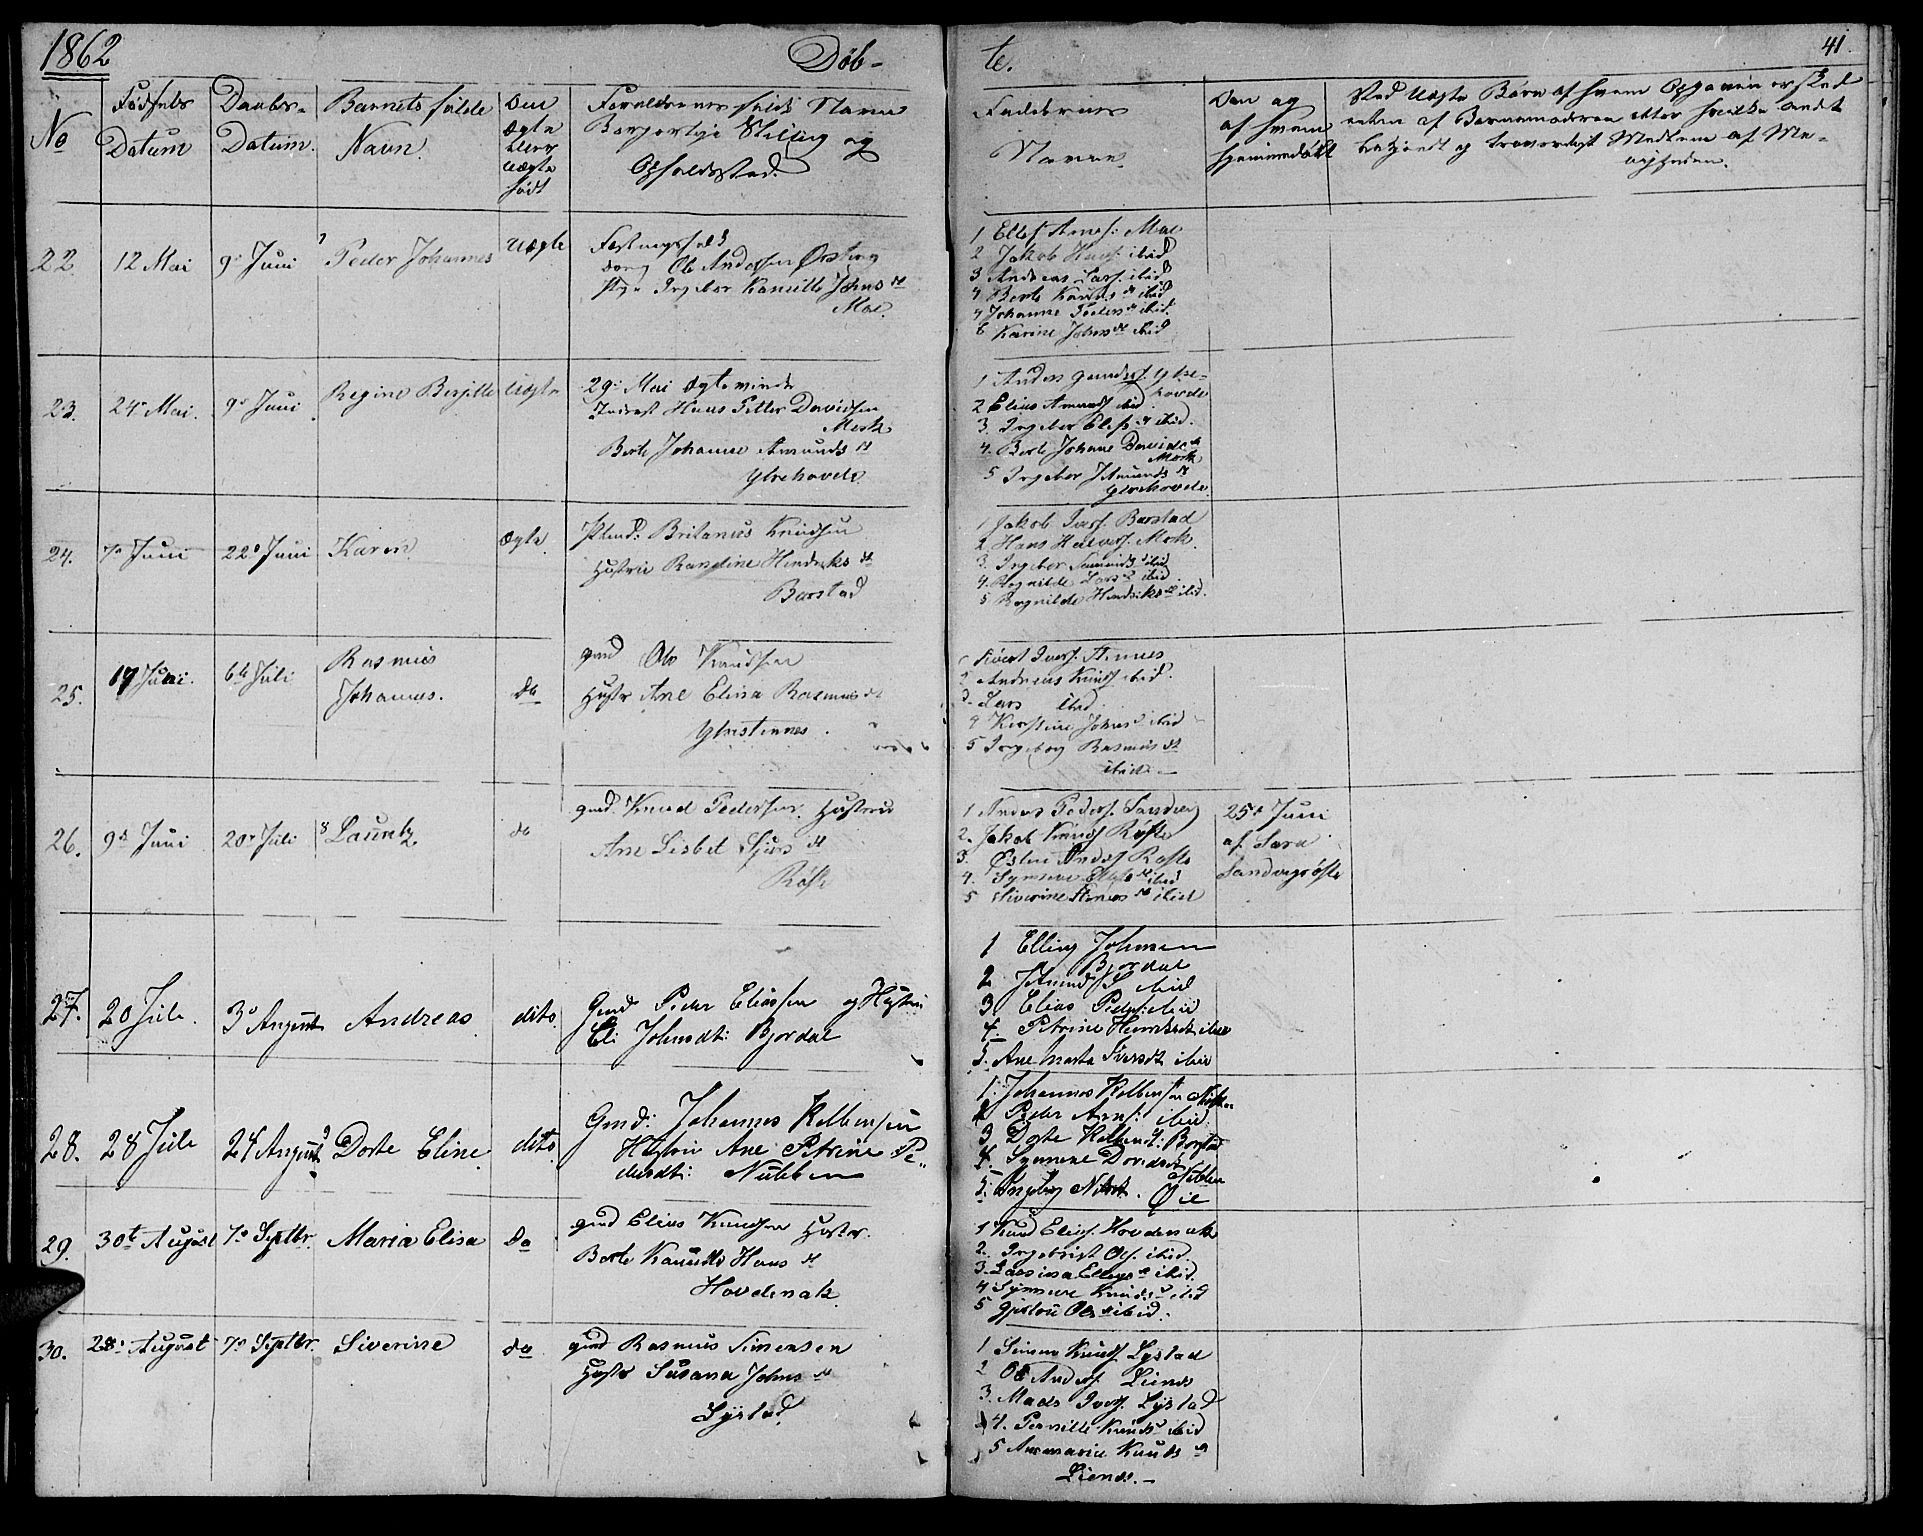 1862
Døb-
te.
41.
No
Fødsels Datum
Daabs- Datum.
Barnets fulde Navn.
Om Ægte eller uægte født
Forældrenes fulde Navne Borgerlige Stilling og Opholdssted.
Faddernes Navne
Naar og af hvem hjemmedøbt
Ved Uægte Børn af hvem Opgaven er sked
enten af Barnemoderen eller hvilke andet
bekjendt og troværdigt Medlem af Me-
nigheden.
22.
12 Mai
9de Juni
Peder Johannes
Uægte
Ole Andersen Ørsting
Johns dt
Moe.
1 Ellef Arnes: Moe
2 Jakob ibid
3 Andreas Lars. ibid
4 Berte Knuds dt ibid
Johanne Peders dt ibid.
6 Karine Johns dt ibid
23.
24de Mai.
9de Juni
Regine Berjitte
Uægte
29de Mai Ægteviede
Inderst Hans Petter Davidsen
Mork
Berte Johanne Amunds dt
Ytrehovde
1 Anders Ytre-
hovde
2 Elias Amunds ibid
3. Ingebor dt ibid.
4. Berte Johane Davids dt
Mork
5 Ingebor Amunds dt
Ytrehovde
24.
7de Juni
22de Juni
Karen
Ægte.
Britanus Knudsen
Hustru Randine Hendriks dt
Barstad
1 Jakob Ivers. Barstad
2 Hans Halvors. Mork.
3. Ingebor ibid
4. Rognilde Lars dt ibid
5 Rognilde Hendriks dt ibid.
25.
17 Juni.
6te Juli
Rasmus
Johannes.
do
gmd Ole Knudsen
Hustr Ane Elisa Rasmus dt
Ytrestennes.
Sivert Ivers. Stennes
2 Andreas Knuds ibid.
3. Lars ibid
4 Kirstine Johns dt ibid
5 Ingeborg Rasmus dt
ibid.
26.
9de Juni
20de Juli
Lauretz
do
gmd. Knud Pedersen Hustru
Ane Lisbet Sjurs dt
Røste
1 Anders Peders. Sandvig
2. Jakob Knuds Røste
3. Østen Anders. Røste
4. Synneve dt ibid
5 Siverine dt ibid
25de Juni
af Lars
Sandvigrøste
27.
20 Juli.
3de August
Andreas
dito.
Gmd Peder Eliassen og Hustru
Eli Johnsdt: Bjordal
1 Elling Johnsen
Bjordal
2 Amund ibid
3 Elias Peders: ibid
4. Petrine Henriksdt ibid
5. Ane Marta Iversdt ibid
28.
28 Juli
24 August
Dorte Eline
dito
Gmd: Johannes Kolbensen
Hustru Ane Petrine Pe-
dersdt: Nubben
1. Johannes Kolbensen
2 Peder Arns: ibid.
3 Dorte Kolbensdt: Barstad
4. Synneve Davidsdt
Nubben
5. Ingeborg Øie
29.
30te August
7de Septbr.
Maria Elisa
do
gmd Elias Knudsen Hustr.
Berte Kanutte Hans dt
Hovdenak
1 Knud Elias. Hovdenak
2. Ingebrigt Ols. ibid.
3. Lassina Ellings dt ibid.
4 Synneve Knuds dt ibid
5 Gjertrü Ols dt ibid.
30.
28de August
7de Septbr.
Siverine
do
gmd Rasmus Simensen
Hustr Susana Johns dt
Lystad
1 Simen Knuds Lystad
2 Ole Anders. Liends
3. Mads Ivers. Lystad
4. Pernille Knuds dt ibid
5 Annmarie Knuds dt
Liends.